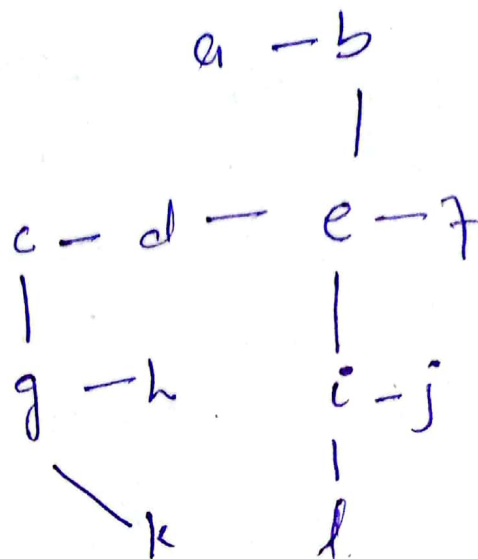 a - b
c - d - e - f
g - h i - j
k l